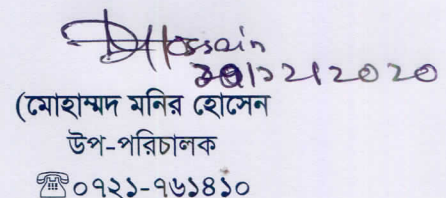 Hossain
30/12/2020
(মোহাম্মদ মনির হোসেন
উপ-পরিচালক
☎০৭২১-৭৬১৪১০